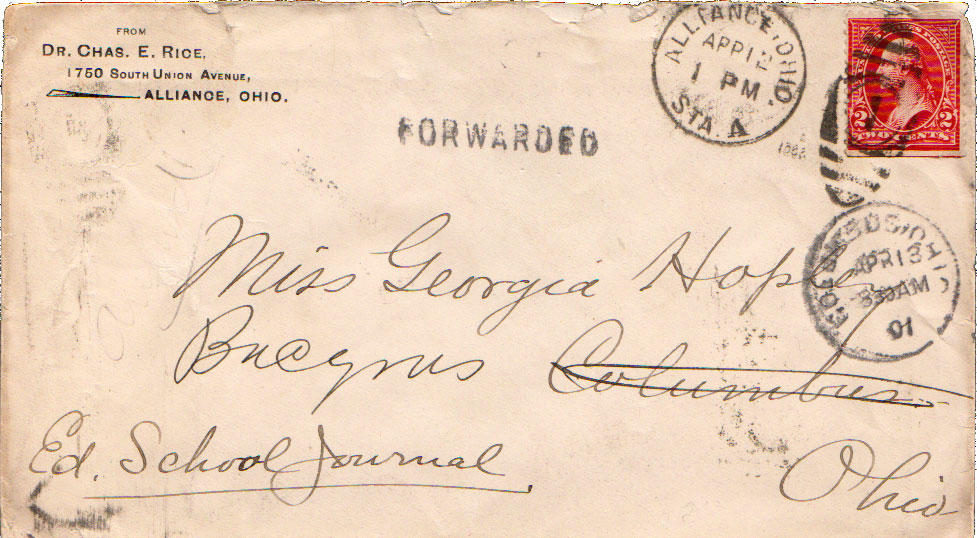 FROM
DR. CHAS. E. RICE,
1750 SOUTH UNION AVENUE,
ALLIANCE, OHIO.
FORWARDED
ALLIANCE, OHIO.
APR 12
1 PM
STA. A
2 2
TWO CENTS
COLUMBUS, OHIO
APR 13
830AM
01
Miss Georgia Hopley
Bucyrus Columbus
Ohio
Ed. School Journal